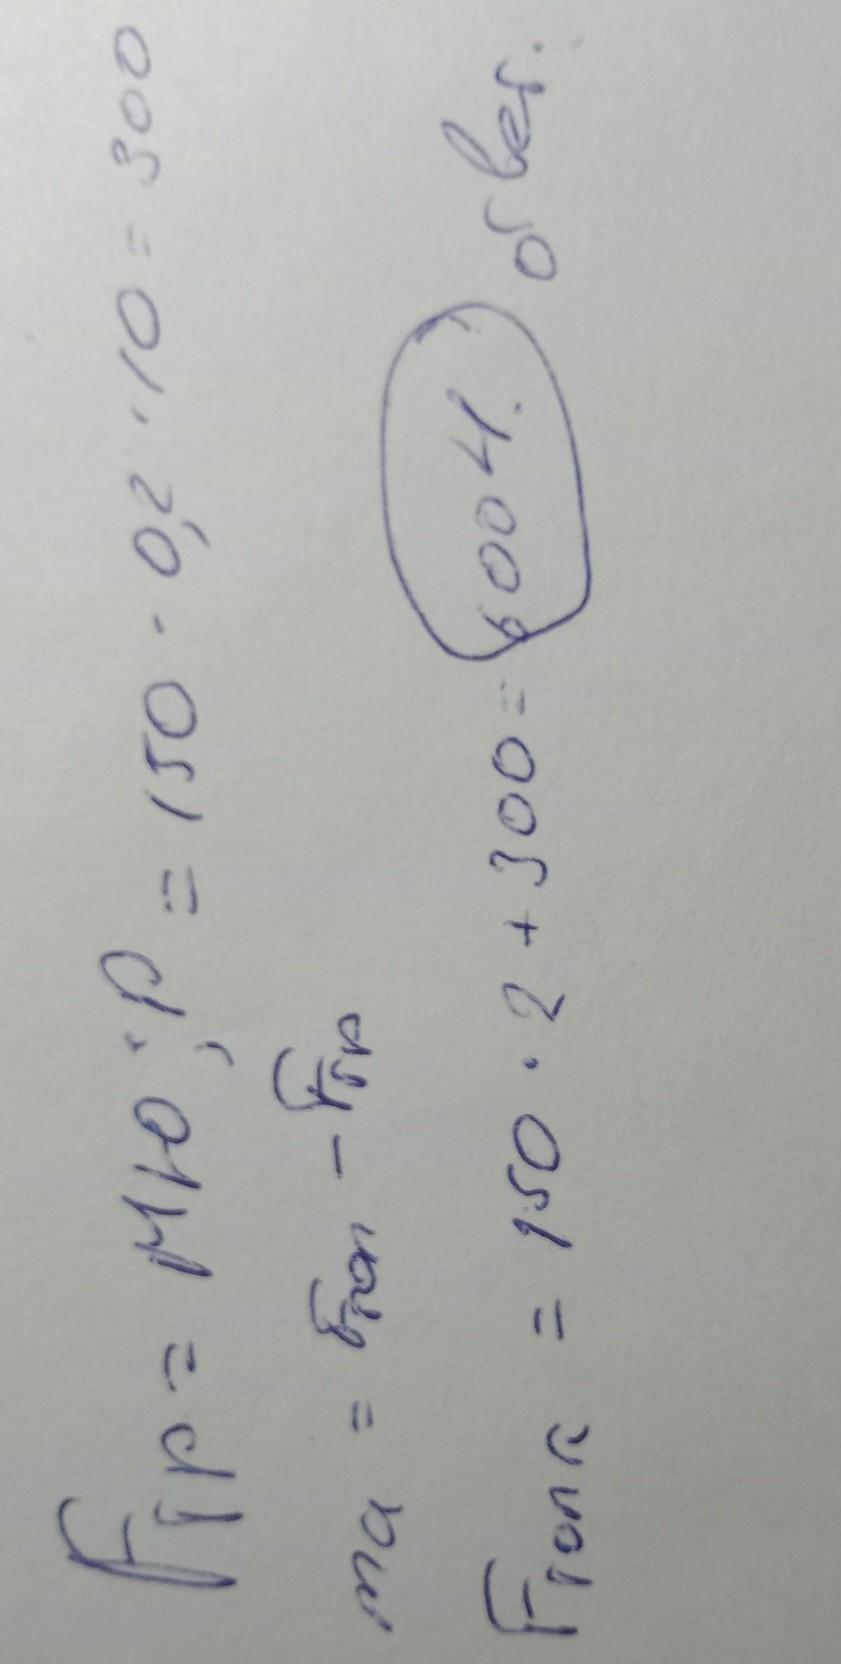 Fтр = мю · P = 150 · 0,2 · 10 = 300
ma = Fтол - Fтр
Fтолк = 150 · 2 + 300 = 600 Н. ответ.